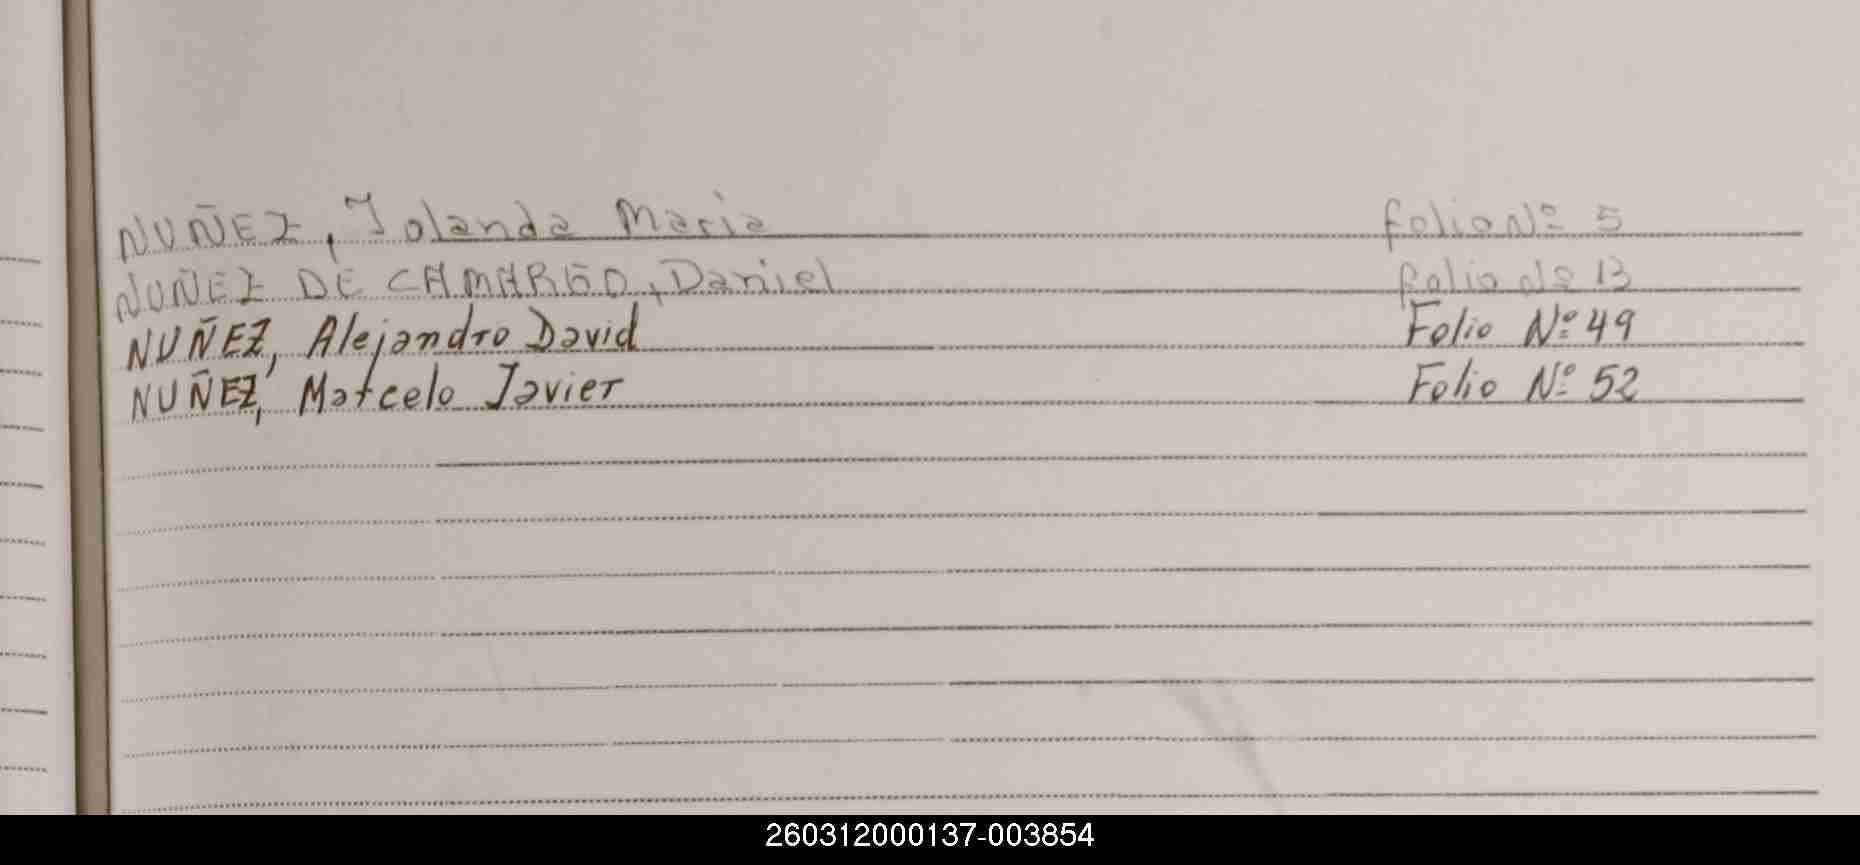 NUÑEZ, Iolanda Maria folio Nº 5
NUÑEZ DE CAMARGO, Daniel folio Nº 13
NUÑEZ, Alejandro David Folio Nº 49
NUÑEZ, Marcelo Javier Folio Nº 52
260312000137-003854